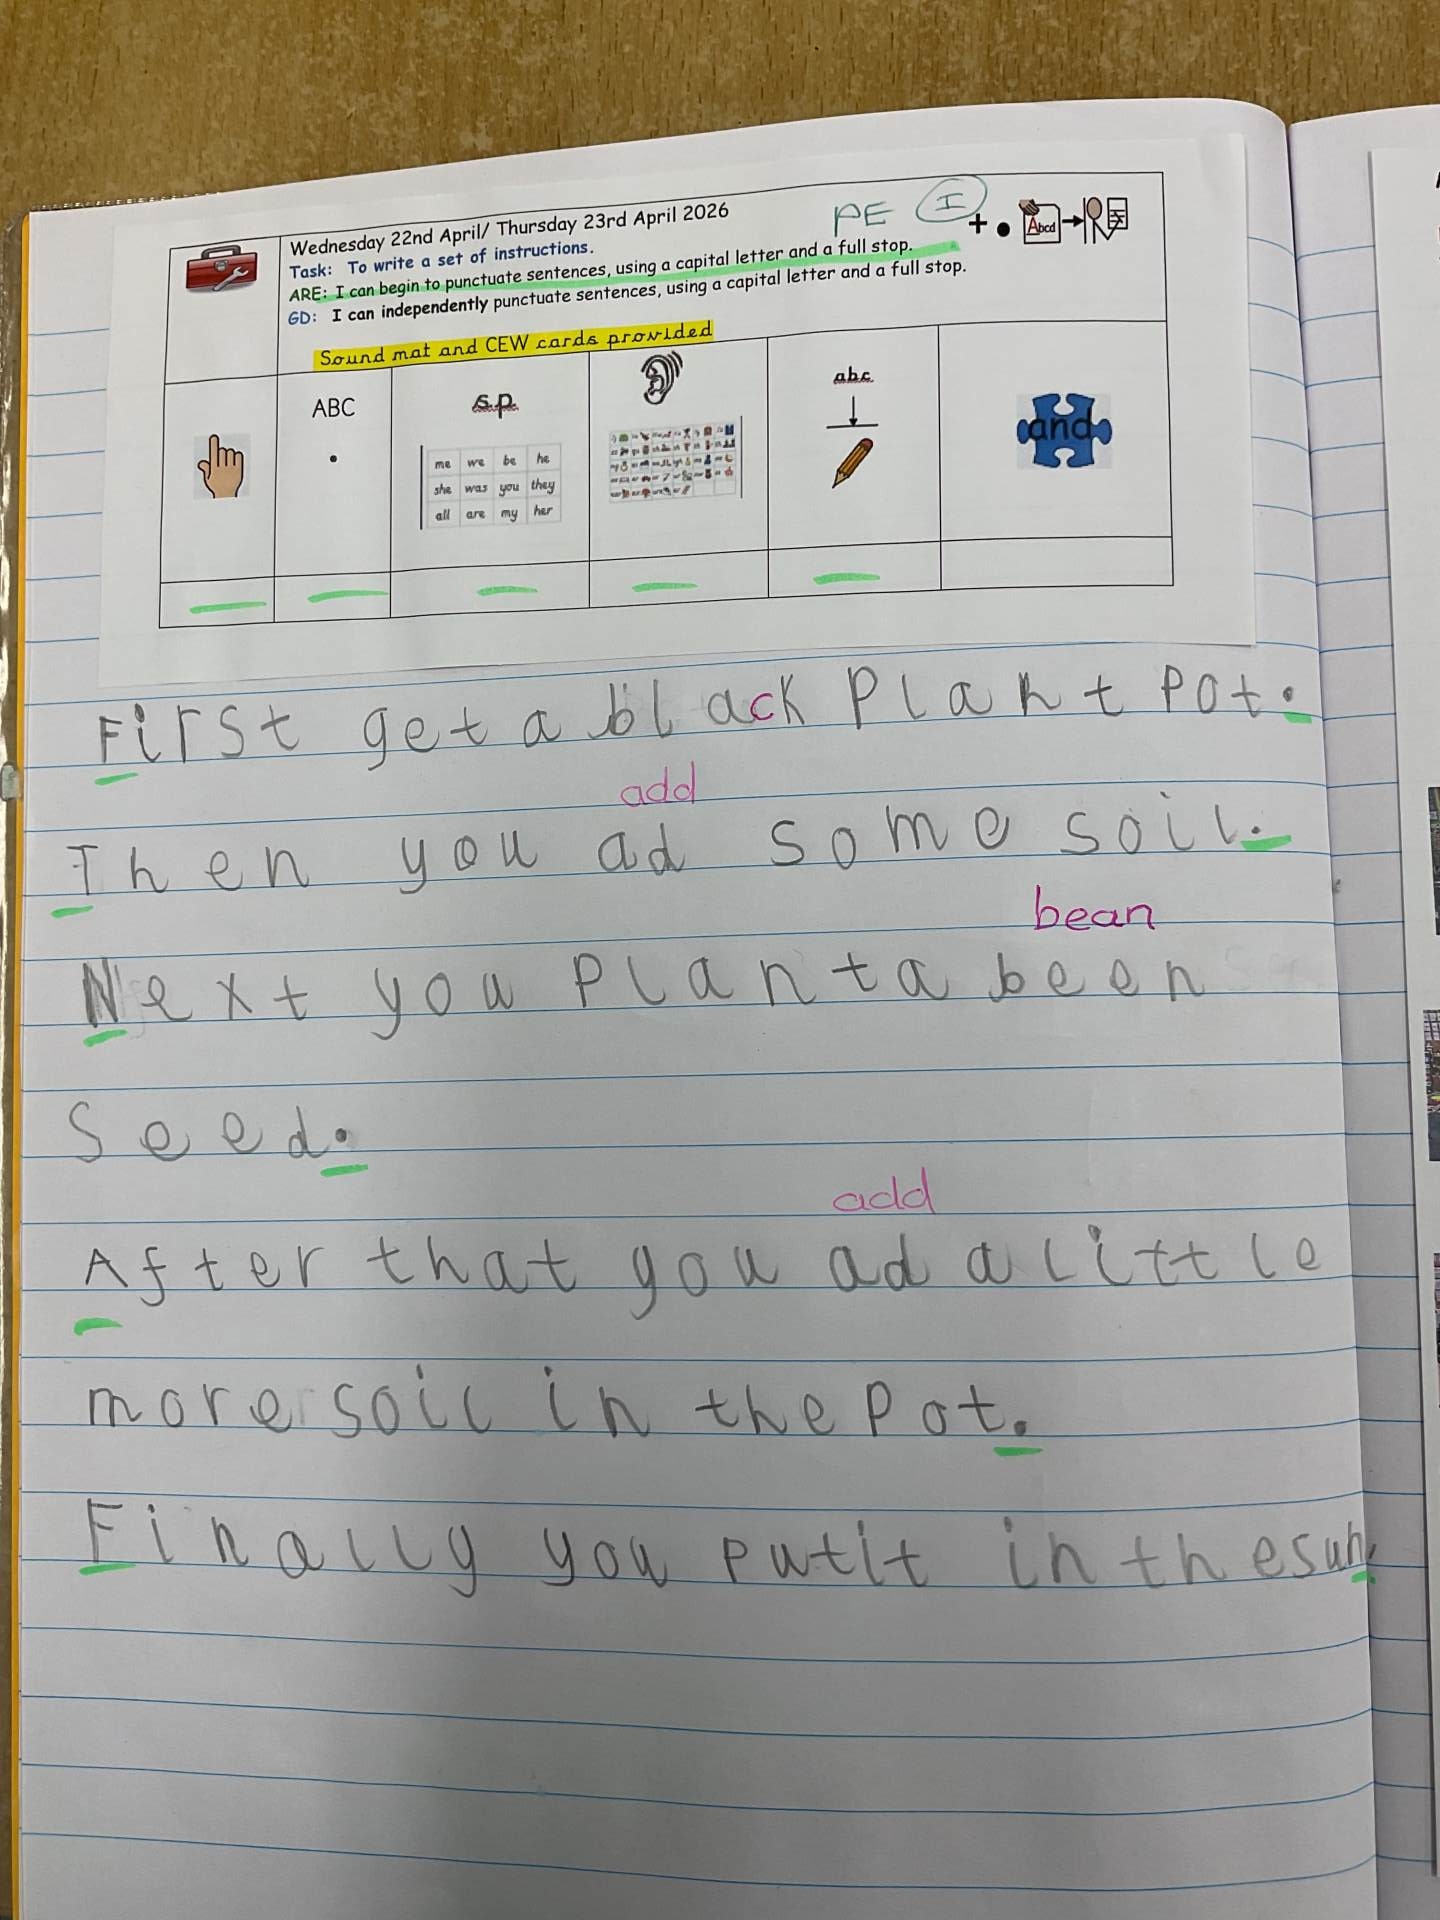 Wednesday 22nd April/ Thursday 23rd April 2026
PE I
+ . Abcd
Task: To write a set of instructions.
ARE: I can begin to punctuate sentences, using a capital letter and a full stop.
GD: I can independently punctuate sentences, using a capital letter and a full stop.
Sound mat and CEW cards provided
ABC
.
sp
me we be he
she was you they
all are my her
abc
and
First get a black Plant Pot.
add
Then you ad some soil.
bean
Next you Plant a been
Seed.
add
After that you ad a little
more soil in the Pot.
Finally you put it in the sun.